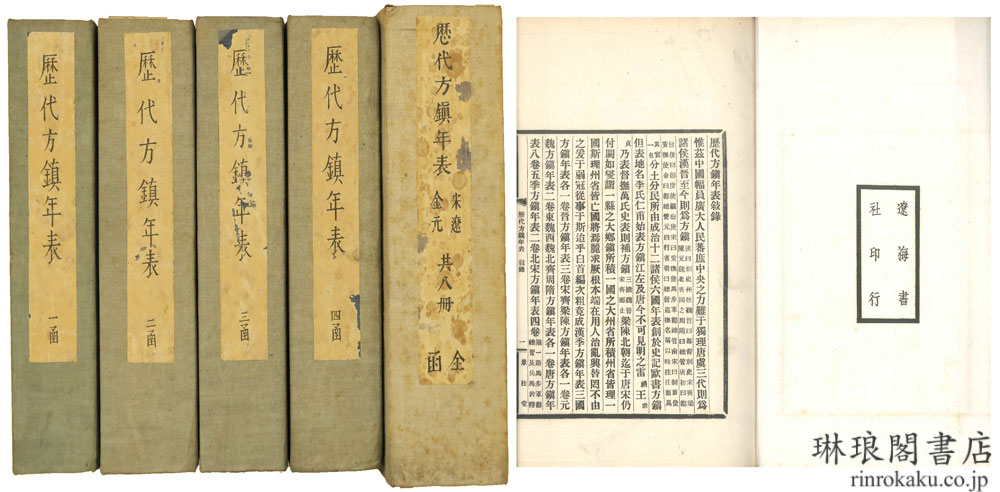 歷代方鎮年表 一函
歷代方鎮年表 二函
歷代方鎮年表 三函
歷代方鎮年表 四函
歷代方鎮年表 宋遼金元 共八冊 全函
遼海書
社印行
歷代方鎮年表敘錄
惟茲中國幅員廣大人民蕃庶中央之力難于獨理唐虞三代則爲
諸侯漢晉至今則爲方鎮
分土分民所由成治十二諸侯六國年表創於史記歐書方鎮
但表地名李氏仁甫始表方鎮江左及唐今不可見明之雷禮王世
貞乃表督撫萬氏史表則補方鎮梁陳北朝迄于唐宋仍
付闕如嘗謂一縣之大鄉鎮所積一國之大州省所積州省皆理一
國斯理州省皆亡國將焉麗求厥根本端在用人治亂興替罔不由
之爰于弱冠從事于斯迨乎白首編次粗竟成漢季方鎮年表三國
方鎮年表各一卷晉方鎮年表三卷宋齊梁陳方鎮年表各一卷元
魏方鎮年表二卷東魏西魏北齊周隋方鎮年表各一卷唐方鎮年
表八卷五季方鎮年表二卷北宋方鎮年表四卷
歷代方鎮年表 敘錄
一
琳琅閣書店
rinrokaku.co.jp